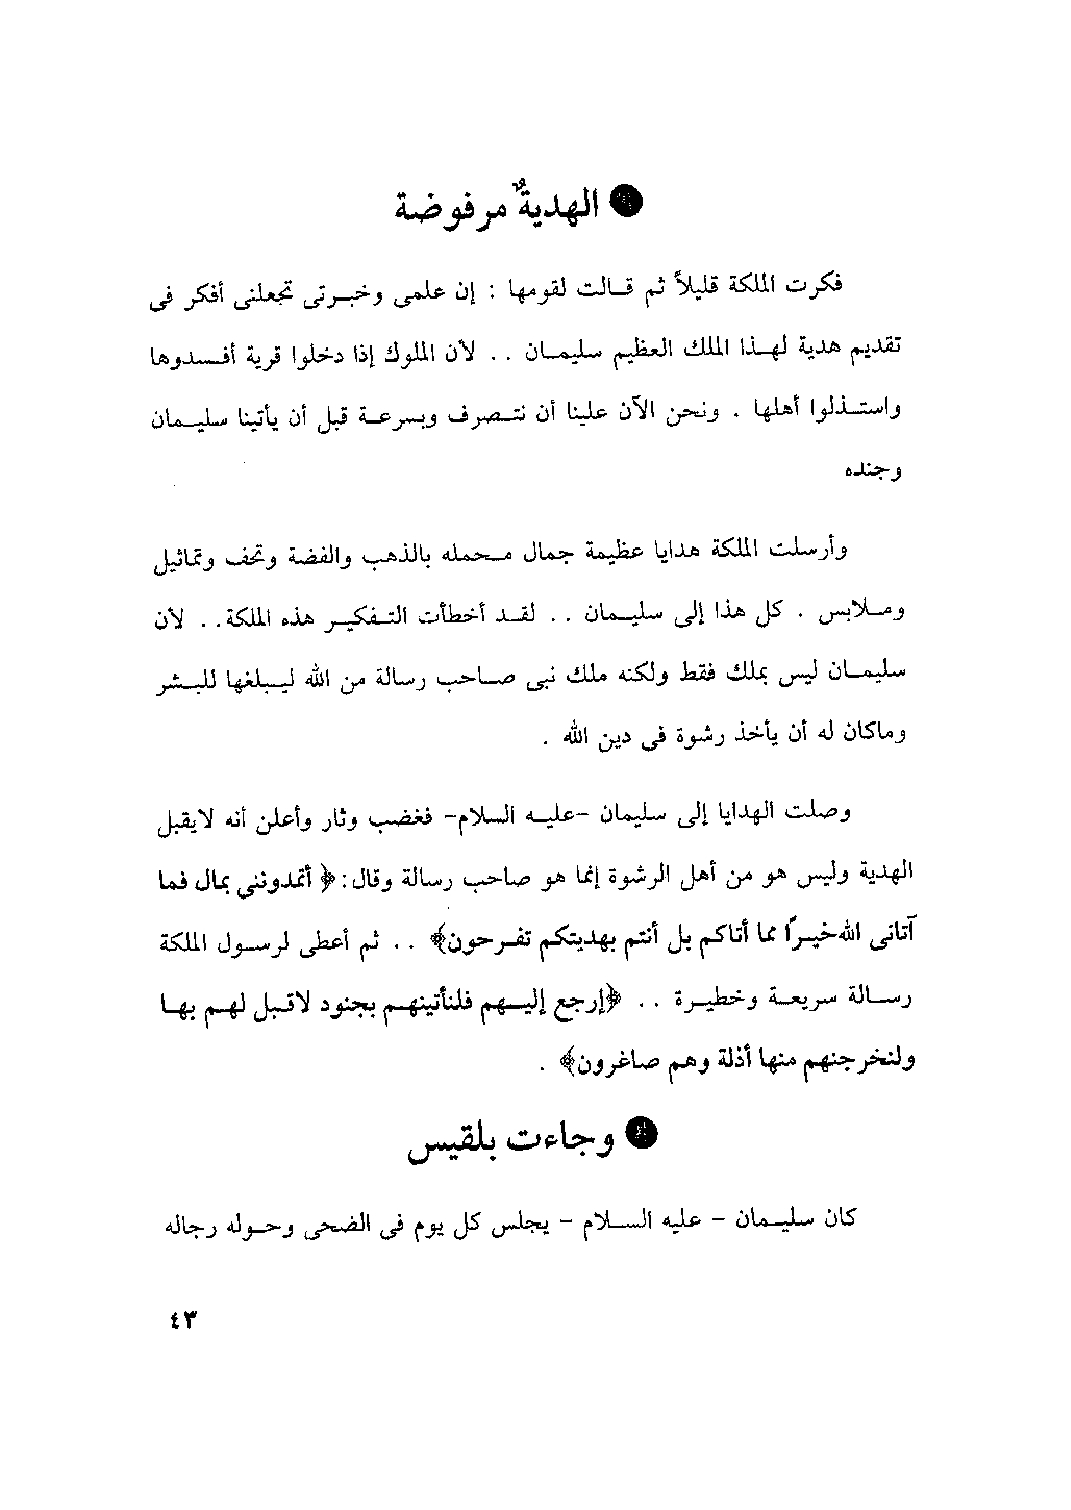 ● الهديةٌ مرفوضة
فكرت الملكة قليلاً ثم قالت لقومها : إن علمى وخبرتى تجعلنى أفكر فى
تقديم هدية لهذا الملك العظيم سليمان . . لأن الملوك إذا دخلوا قرية أفسدوها
واستذلوا أهلها . ونحن الآن علينا أن نتصرف وبسرعة قبل أن يأتينا سليمان
وجنده
وأرسلت الملكة هدايا عظيمة جمال محمله بالذهب والفضة وتحف وتماثيل
وملابس . كل هذا إلى سليمان . . لقد أخطأت التفكير هذه الملكة . . لأن
سليمان ليس بملك فقط ولكنه ملك نبى صاحب رسالة من الله ليبلغها للبشر
وماكان له أن يأخذ رشوة فى دين الله .
وصلت الهدايا إلى سليمان -عليه السلام- فغضب وثار وأعلن أنه لايقبل
الهدية وليس هو من أهل الرشوة إنما هو صاحب رسالة وقال: ﴿ أتمدونني بمال فما
آتانى الله خيرًا مما أتاكم بل أنتم بهديتكم تفرحون﴾ . . ثم أعطى لرسول الملكة
رسالة سريعة وخطيرة . . ﴿إرجع إليهم فلنأتينهم بجنود لاقبل لهم بها
ولنخرجنهم منها أذلة وهم صاغرون﴾ .
● وجاءت بلقيس
كان سليمان - عليه السلام - يجلس كل يوم فى الضحى وحوله رجاله
٤٣